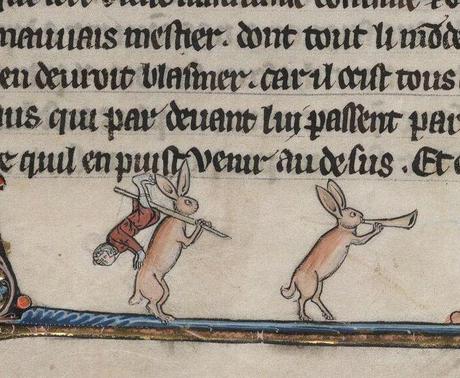 mauuais mestier. dont tout li mõde
en deuroit blasmer. car il ocist tous
aus qui par deuant lui passent par
quil en puist venir au desus. Et